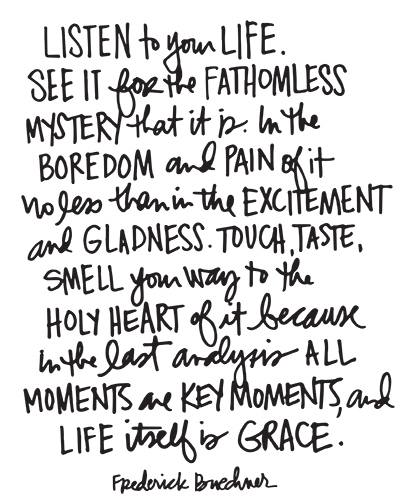 LISTEN to your LIFE.
SEE IT for the FATHOMLESS
MYSTERY that it is. In the
BOREDOM and PAIN of it
no less than in the EXCITEMENT
and GLADNESS. TOUCH, TASTE,
SMELL your way to the
HOLY HEART of it because
in the last analysis ALL
MOMENTS are KEY MOMENTS, and
LIFE itself is GRACE.
Frederick Buechner